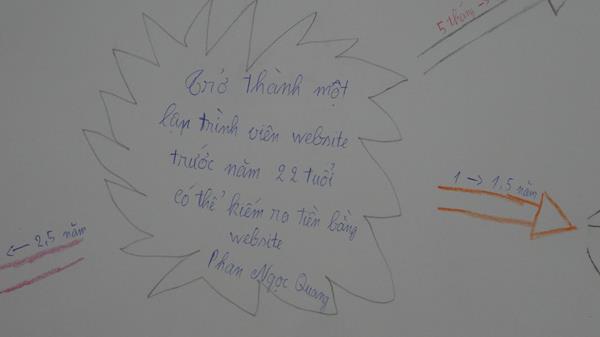 5 tháng →
Trở thành một
lạp trình viên website
trước năm 22 tuổi
có thể kiếm ra tiền bằng
website
Phan Ngọc Quang
1 → 1,5 năm
← 2,5 năm